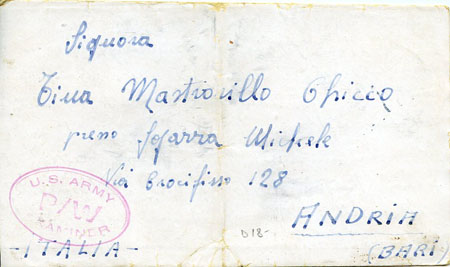 Signora
Tina Mastrorillo Chicco
presso Sgarra Michele
Via Crocifisso 128
U.S. ARMY
P/W
EXAMINER
ANDRIA
D18-
-ITALIA-
(BARI)